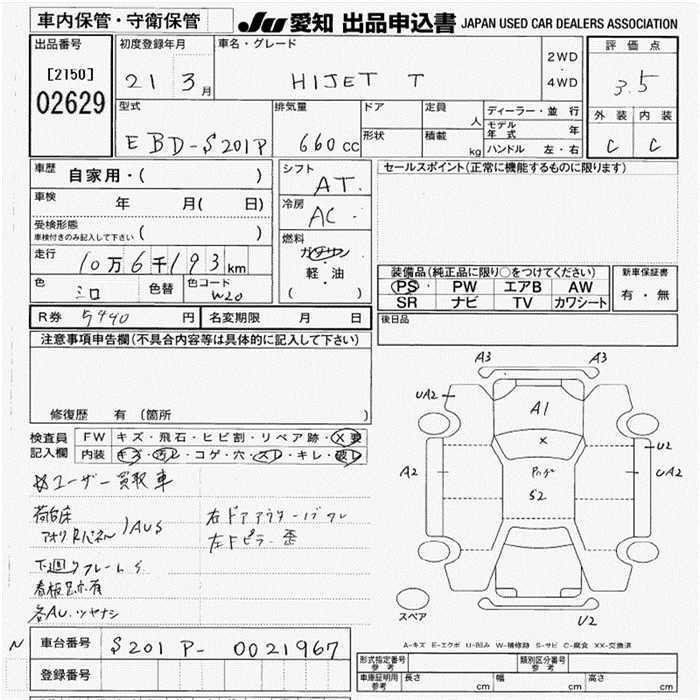 車内保管・守衛保管
JU 愛知 出品申込書 JAPAN USED CAR DEALERS ASSOCIATION
出品番号
[2150]
02629
初度登録年月
21 3月
車名・グレード
HIJET T
2WD
・
4WD
評価点
3.5
外装 内装
C C
型式
EBD-S201P
排気量
660cc
ドア
形状
定員
人
積載
kg
ディーラー・並行
モデル年式 年
ハンドル 左・右
車歴 自家用・( )
車検 年 月( 日)
受検形態
車検付きのみ記入して下さい ( )
走行 10万6千193km
色 シロ 色替 色コード W20
シフト
AT
冷房
AC
燃料
ガソリン
・
軽・油
( )
セールスポイント(正常に機能するものに限ります)
装備品(純正品に限り○をつけてください)
PS PW エアB AW
SR ナビ TV カワシート
新車保証書
有・無
後日品
R券 5940 円 名変期限 月 日
注意事項申告欄(不具合内容等は具体的に記入して下さい)
修復歴 有(箇所 )
検査員 FW キズ・飛石・ヒビ割・リペア跡・X要
記入欄 内装 キズ・汚レ・コゲ・穴・スレ・キレ・破レ
ユーザー買取車
荷台床
アオリ Rパネル
AUS
右ドアアウターハゲワレ
左Fピラー歪
下廻りフレームS
看板跡有
各AU、ツヤナシ
A3 A3
UA2
A1
X
U2
A2
UA2
S2
スペア
U2
A-キズ E-エクボ U-凹み W-補修跡 S-サビ C-腐食 XX-交換済
N 車台番号 S201P-0021967
登録番号
形式指定番号
参考
類別区分番号
参考
車庫証明用
参考
長さ cm 幅 cm 高さ cm